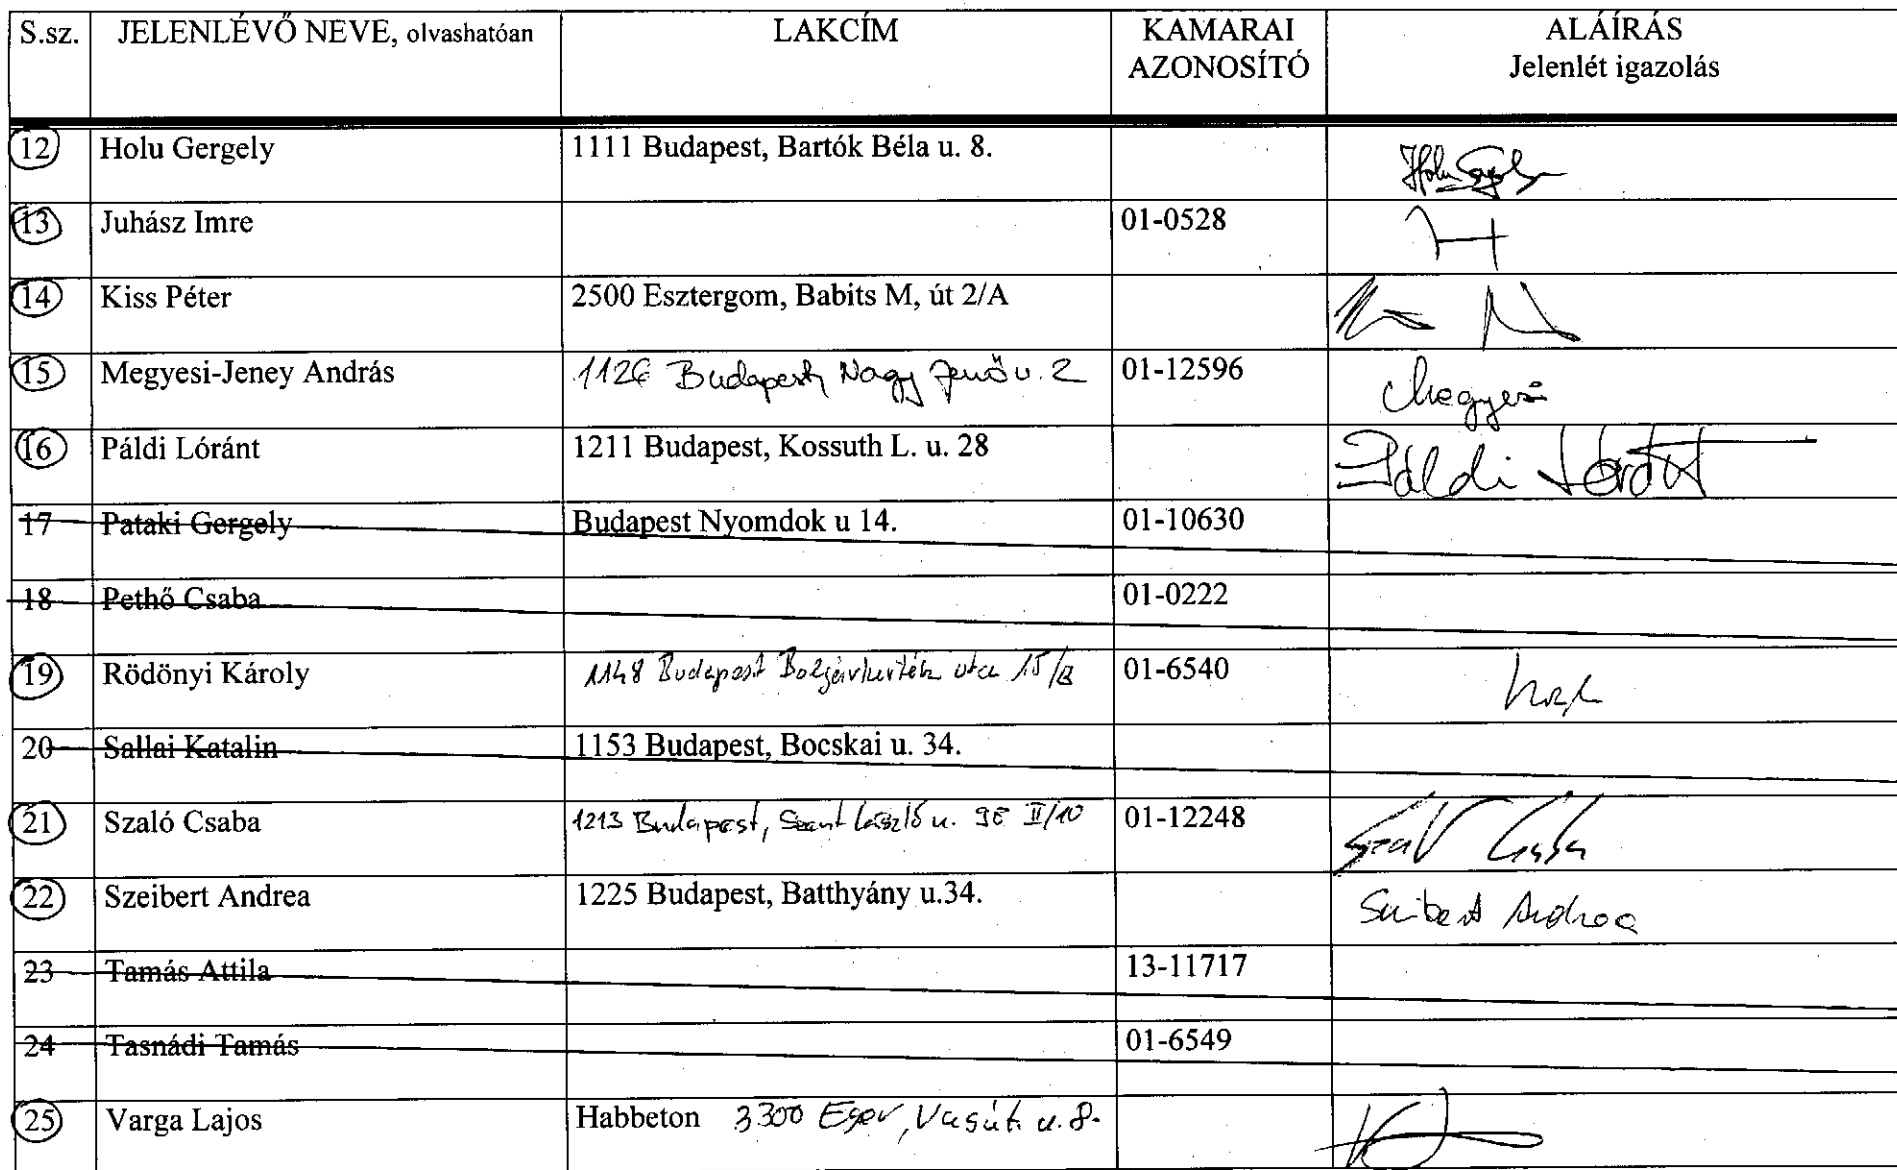 S.sz. JELENLÉVŐ NEVE, olvashatóan LAKCÍM KAMARAI AZONOSÍTÓ ALÁÍRÁS Jelenlét igazolás
12 Holu Gergely 1111 Budapest, Bartók Béla u. 8. Holu Gergely
13 Juhász Imre 01-0528
14 Kiss Péter 2500 Esztergom, Babits M, út 2/A
15 Megyesi-Jeney András 1126 Budapest, Nagy Jenő u. 2 01-12596 Megyesi
16 Páldi Lóránt 1211 Budapest, Kossuth L. u. 28 Páldi Lóránt
17 Pataki Gergely Budapest Nyomdok u 14. 01-10630
18 Pethő Csaba 01-0222
19 Rödönyi Károly 1148 Budapest Bolgárkertész utca 15/B 01-6540
20 Sallai Katalin 1153 Budapest, Bocskai u. 34.
21 Szaló Csaba 1213 Budapest, Szent László u. II/10 01-12248 Szaló Csaba
22 Szeibert Andrea 1225 Budapest, Batthyány u.34. Szeibert Andrea
23 Tamás Attila 13-11717
24 Tasnádi Tamás 01-6549
25 Varga Lajos Habbeton 3300 Eger, Vasúti u. 8.